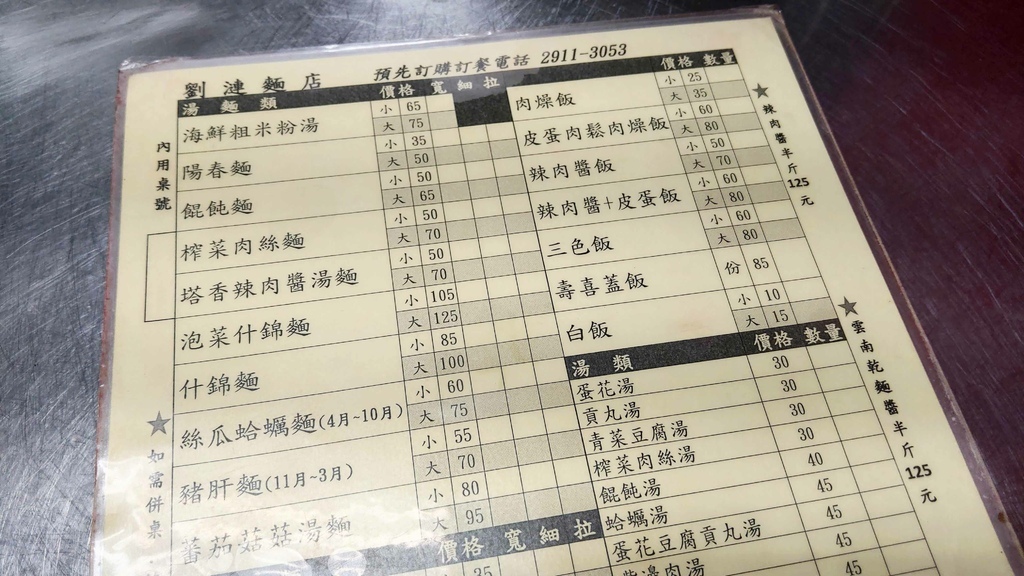 劉漣麵店 預先訂購訂餐電話 2911-3053
內用桌號
★如需併桌
湯麵類 價格 寬 細 拉
海鮮粗米粉湯 小 65 大 75
陽春麵 小 35 大 50
餛飩麵 小 50 大 65
榨菜肉絲麵 小 50 大 70
塔香辣肉醬湯麵 小 50 大 70
泡菜什錦麵 小 105 大 125
什錦麵 小 85 大 100
絲瓜蛤蠣麵(4月~10月) 小 60 大 75
豬肝麵(11月~3月) 小 55 大 70
蕃茄菇菇湯麵 小 80 大 95
價格 寬 細 拉
35
價格 數量
肉燥飯 小 25 大 35
皮蛋肉鬆肉燥飯 小 60 大 80
辣肉醬飯 小 50 大 70
辣肉醬+皮蛋飯 小 60 大 80
三色飯 小 60 大 80
壽喜蓋飯 份 85
白飯 小 10 大 15
湯類 價格 數量
蛋花湯 30
貢丸湯 30
青菜豆腐湯 30
榨菜肉絲湯 30
餛飩湯 40
蛤蠣湯 45
蛋花豆腐貢丸湯 45
邊肉湯 45
★辣肉醬半斤125元
★雲南乾麵醬半斤125元